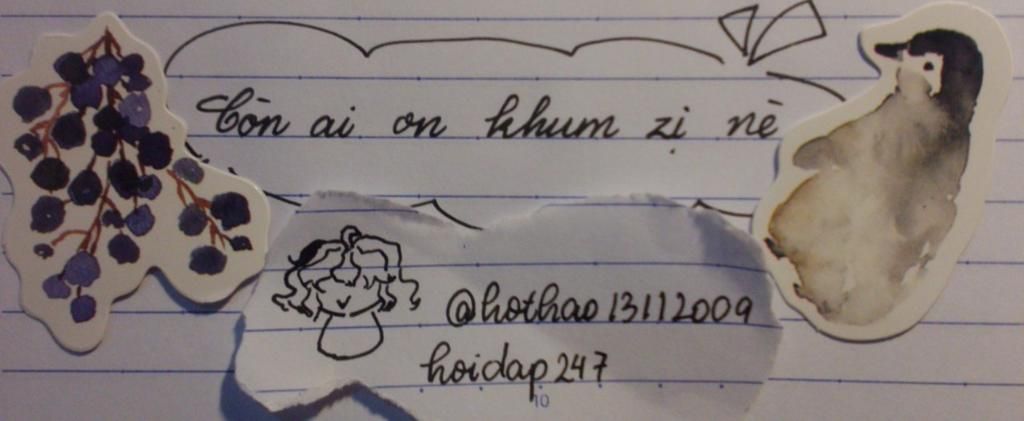 Còn ai on khum zị nè
@hothao13112009
hoidap247
10